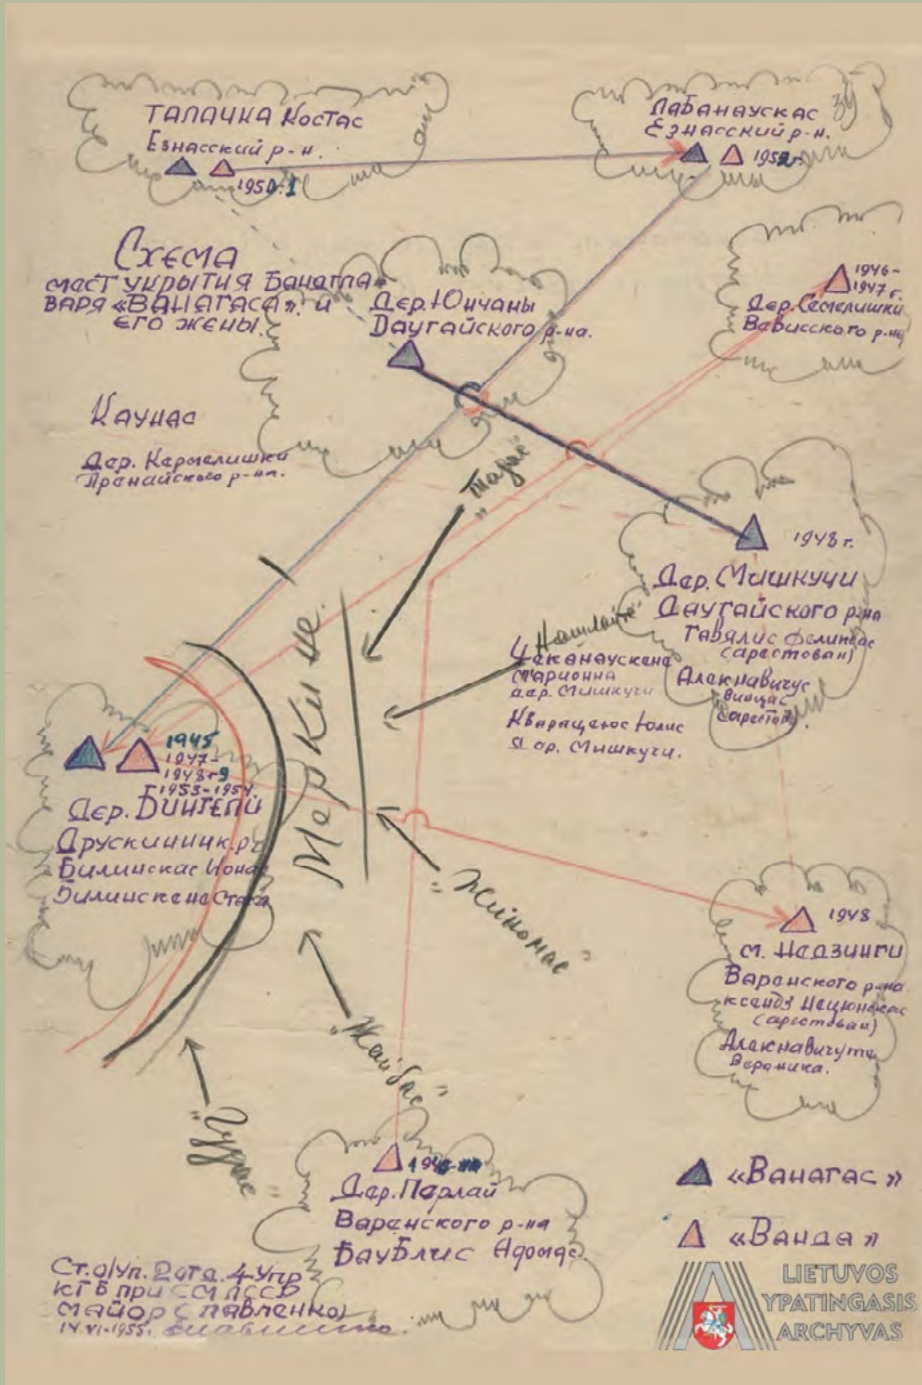 ТАЛАЧКА КОСТАС
Езнасский р-н.
1951
ЛАБАНАУСКАС
Езнасский р-н.
1952 г.
Схема
мест укрытия Банагла-
варя «ВАНАГАСА» и
его жены.
Дер. Юнчаны
Даугайского р-на.
1946-
1947 г.
Дер. Семелишки
Вевисского р-на
Каунас
Дер. Кармелишки
Пренайского р-на.
1948 г.
Дер. Мишкучи
Даугайского р-на
Гавялис Феликсас
(арестован)
Алекнавичус
Винцас
(арестов.)
Чеканаускене
Марионна
дер. Мишкучи
Кваращеюс Юлис
дер. Мишкучи.
Меркине.
1945
1947-
1948-9
1953-1954.
Дер. БИНГЕЛИ
Друскининк. р-
Билинскас Ионас
Билинскене Стасе
"Жайбас"
1948
м. Недзинги
Варенского р-на
ксендз
(арестован)
Алекнавичуте
Вероника.
Дер. Перлай
Варенского р-на
Баублис Адомас
«Ванагас»
«Ванда»
Ст. о/уп. 2 отд. 4 Упр
КГБ при СМ ЛССР
майор (Павленко)
14.VI-1955.
LIETUVOS
YPATINGASIS
ARCHYVAS